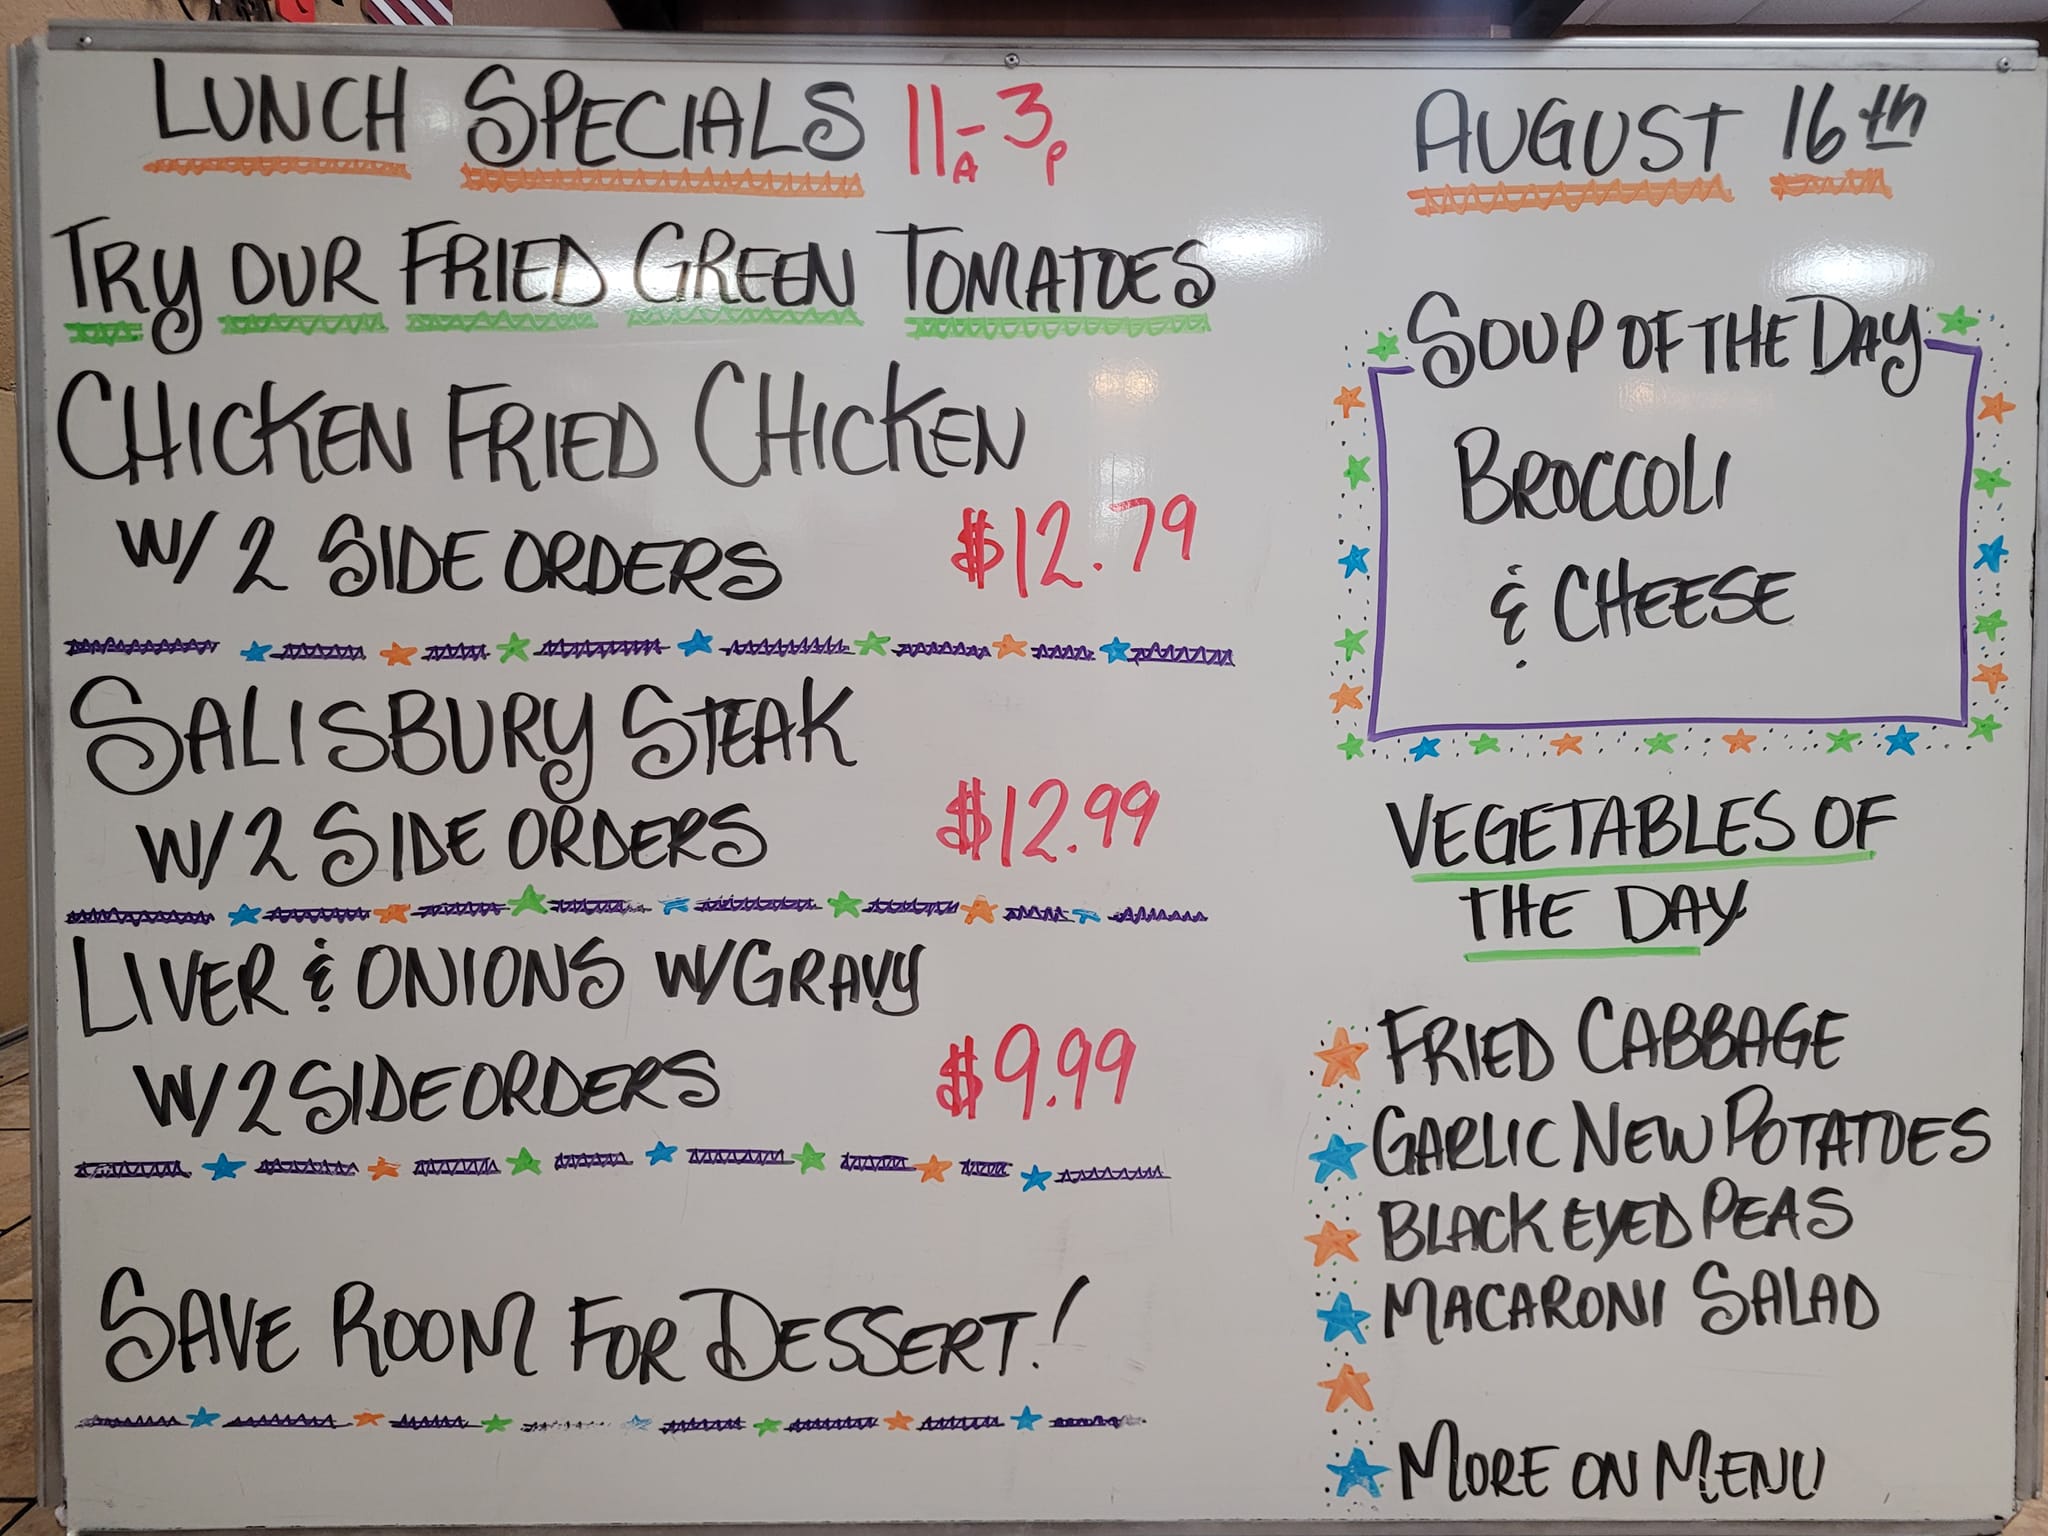 LUNCH SPECIALS 11A-3P
TRY OUR FRIED GREEN TOMATOES
CHICKEN FRIED CHICKEN
W/ 2 SIDE ORDERS $12.79
SALISBURY STEAK
W/ 2 SIDE ORDERS $12.99
LIVER & ONIONS W/ GRAVY
W/ 2 SIDE ORDERS $9.99
SAVE ROOM FOR DESSERT!
AUGUST 16th
SOUP OF THE DAY
BROCCOLI
& CHEESE
VEGETABLES OF
THE DAY
FRIED CABBAGE
GARLIC NEW POTATOES
BLACK EYED PEAS
MACARONI SALAD
MORE ON MENU